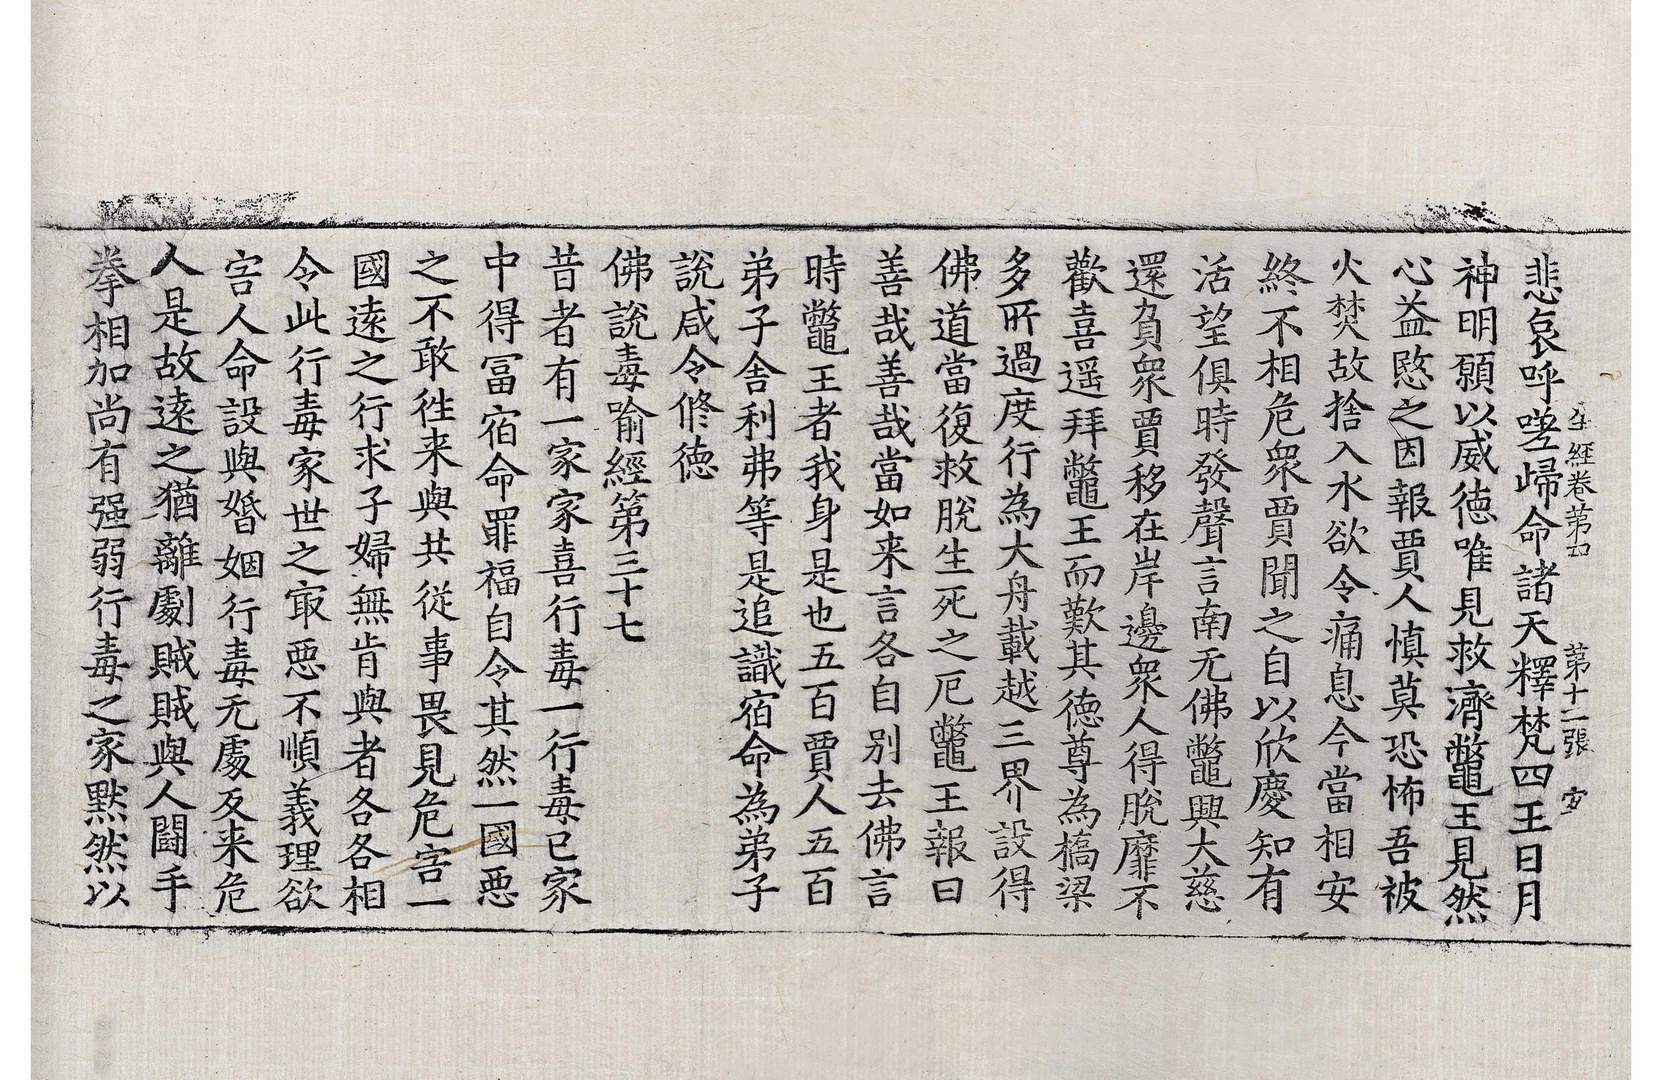 生經卷第四 第十二張 安
悲哀呼嗟歸命諸天釋梵四王日月
神明願以威德唯見救濟鼈王見然
心益愍之因報賈人慎莫恐怖吾被
火焚故捨入水欲令痛息今當相安
終不相危衆賈聞之自以欣慶知有
活望俱時發聲言南无佛鼈興大慈
還負衆賈移在岸邊衆人得脫靡不
歡喜遥拜鼈王而歎其德尊為橋梁
多所過度行為大舟載越三界設得
佛道當復救脫生死之厄鼈王報曰
善哉善哉當如来言各自别去佛言
時鼈王者我身是也五百賈人五百
弟子舍利弗等是追識宿命為弟子
說咸令修德
佛說毒喻經第三十七
昔者有一家家喜行毒一行毒已家
中得冨宿命罪福自令其然一國惡
之不敢徃来與共從事畏見危害一
國遠之行求子婦無肯與者各各相
令此行毒家世之㝡惡不順義理欲
害人命設與婚姻行毒无處反来危
人是故遠之猶離劇賊賊與人鬪手
拳相加尚有强弱行毒之家默然以